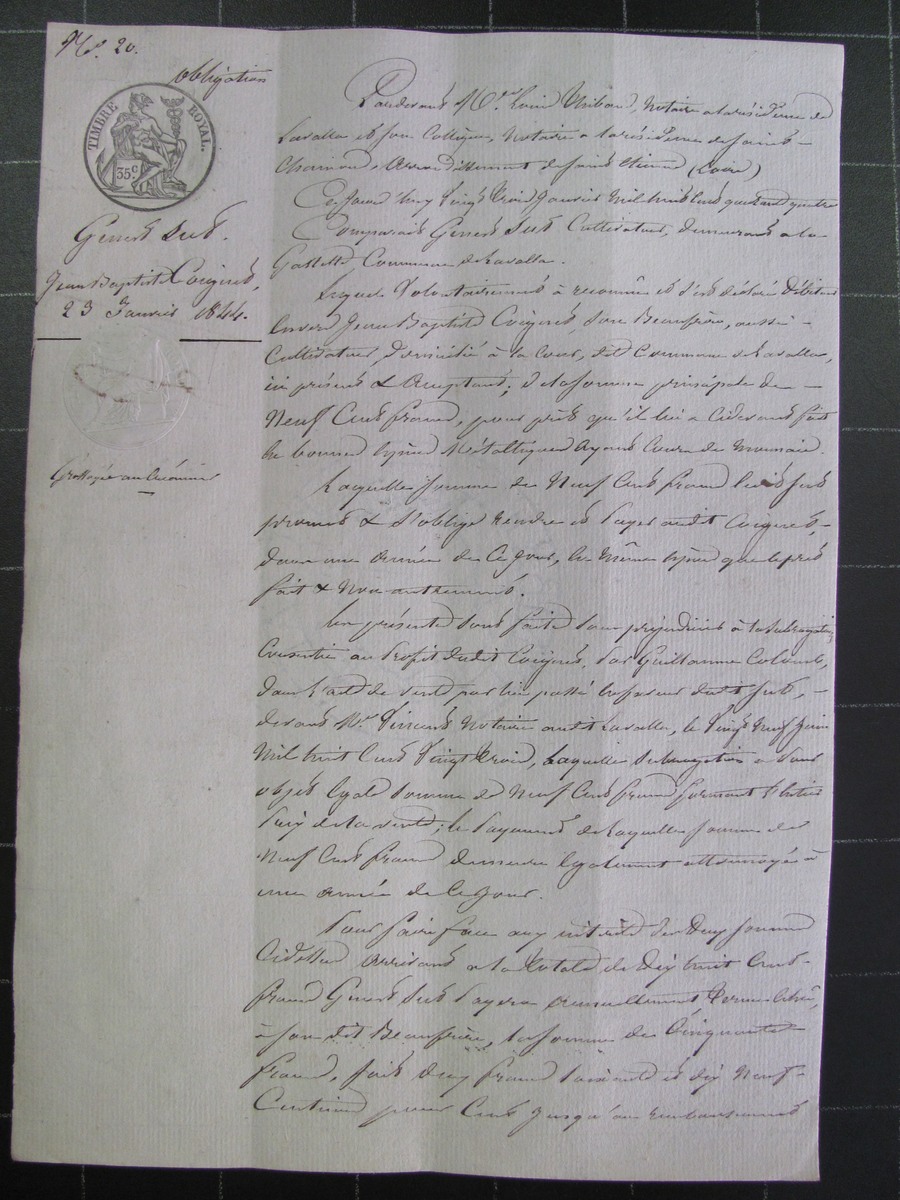 N.o 20.
obligation
TIMBRE ROYAL.
35 c.
Genest
Jean Baptiste Coignet,
23 Janvier 1844.
Grossoyée au Créancier
Pardevant M.e Louis Thibaud, Notaire à la résidence de
Lavalla et son Collègue, Notaire à la résidence de Saint-
Chamond, Arrondissement de Saint Etienne (Loire)
Ce jourd'huy Vingt Trois Janvier Mil huit cent quarante quatre
Comparait Genest Cultivateur, demeurant à la
Commune de Lavalla.
Lequel Volontairement à reconnu et s'est déclaré Débiteur
Envers Jean Baptiste Coignet son Beaufrère, aussi
Cultivateur, domicilié à la Cour, dite Commune de Lavalla,
ici présent & acceptant; de la somme principale de
Neuf Cent francs, pour prêt qu'il lui a cidevant fait
en bonnes espèces Métalliques ayant Cours de Monnaie.
Laquelle somme de Neuf Cent francs
promet & s'oblige rendre et payer audit Coignet,
dans une année de Ce jour, en même espèce que le prêt
fait & Non autrement.
Les présentes sont faites sans préjudice à la Subrogation
Consentie au Profit dudit Coignet, Par Guillaume Colomb,
dans l'acte de vente par lui passé en faveur dudit
devant M.e Vincent Notaire audit Lavalla, le Vingt Neuf Juin
Mil huit Cent Vingt Trois, Laquelle Subrogation a pour
objet égale Somme de Neuf Cent francs formant l'entier
Prix de la vente; le Payement de laquelle somme de
Neuf Cent francs demeure également attermoyé à
une année de Ce Jour.
Pour faire face aux intérêts des Deux sommes
Cidessus arrivant à la totale de Dix huit Cent
francs Genest payera annuellement terme échu,
à son dit Beaufrère, la somme de Cinquante
francs, soit deux francs soixante et dix Neuf
Centimes pour Cent jusqu'au remboursement